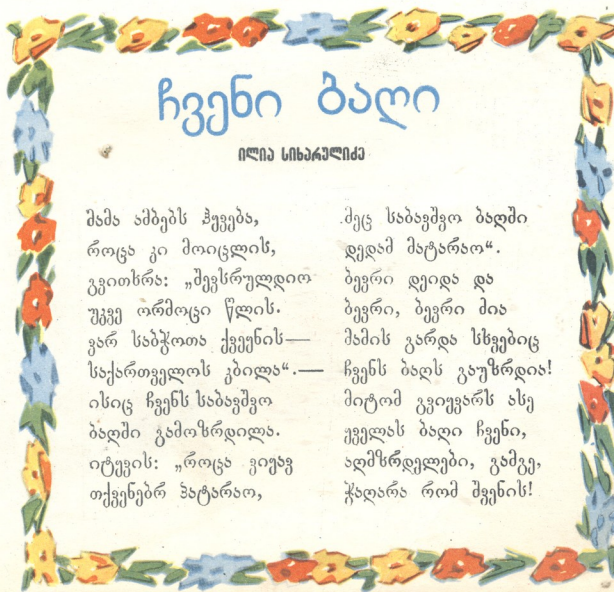 ჩვენი ბაღი
ილია სიხარულიძე
მამა ამბებს ჰყვება,
როცა კი მოიცლის,
გვითხრა: „შევსრულდიო
უკვე ორმოცი წლის.
ვარ საბჭოთა ქვეყნის—
საქართველოს კბილა“.—
ისიც ჩვენს საბავშვო
ბაღში გამოზრდილა.
იტყვის: „როცა ვიყავ
თქვენებრ პატარაო,
მეც საბავშვო ბაღში
დედამ მატარაო“.
ბევრი დეიდა და
ბევრი, ბევრი ძია
მამის გარდა სხვებიც
ჩვენს ბაღს გაუზრდია!
მიტომ გვიყვარს ასე
ყველას ბაღი ჩვენი,
აღმზრდელები, გამგე,
ჭაღარა რომ შვენის!